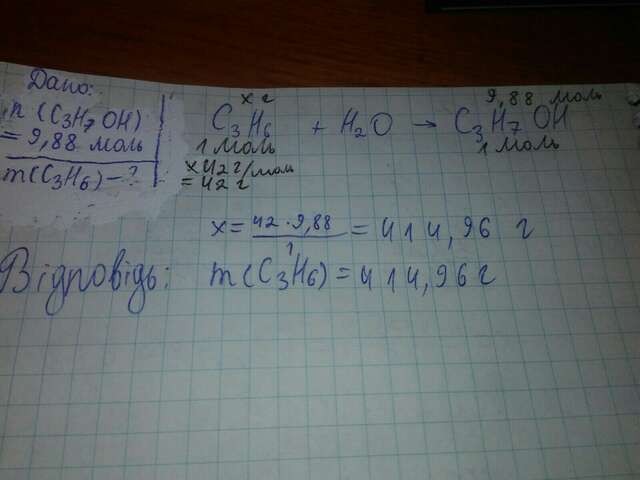 Дано:
n (C3H7OH)
= 9,88 моль
m(C3H6) – ?
x г
9,88 моль
C3H6 + H2O → C3H7OH
1 моль
1 моль
x 42 г/моль
= 42 г
x = 42 · 9,88 / 1 = 414,96 г
Відповідь: m(C3H6) = 414,96 г